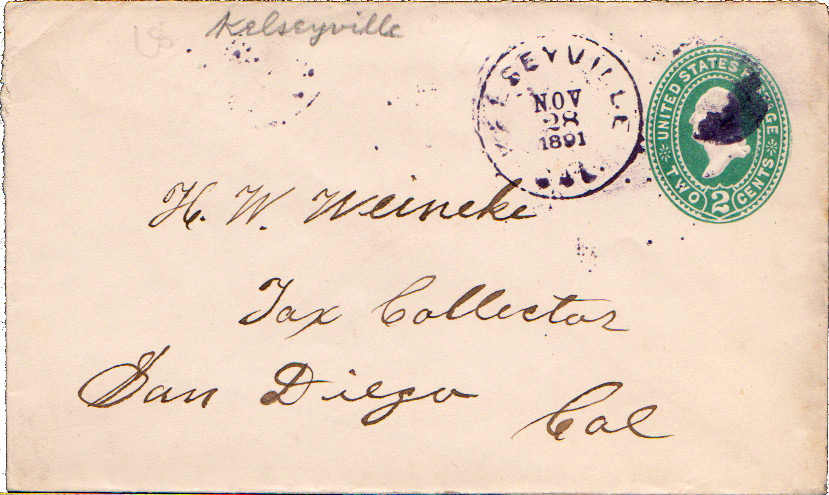 Kelseyville
KELSEYVILLE
NOV
28
1891
CAL.
UNITED STATES POSTAGE
TWO 2 CENTS
H. W. Weineke
Tax Collector
San Diego
Cal